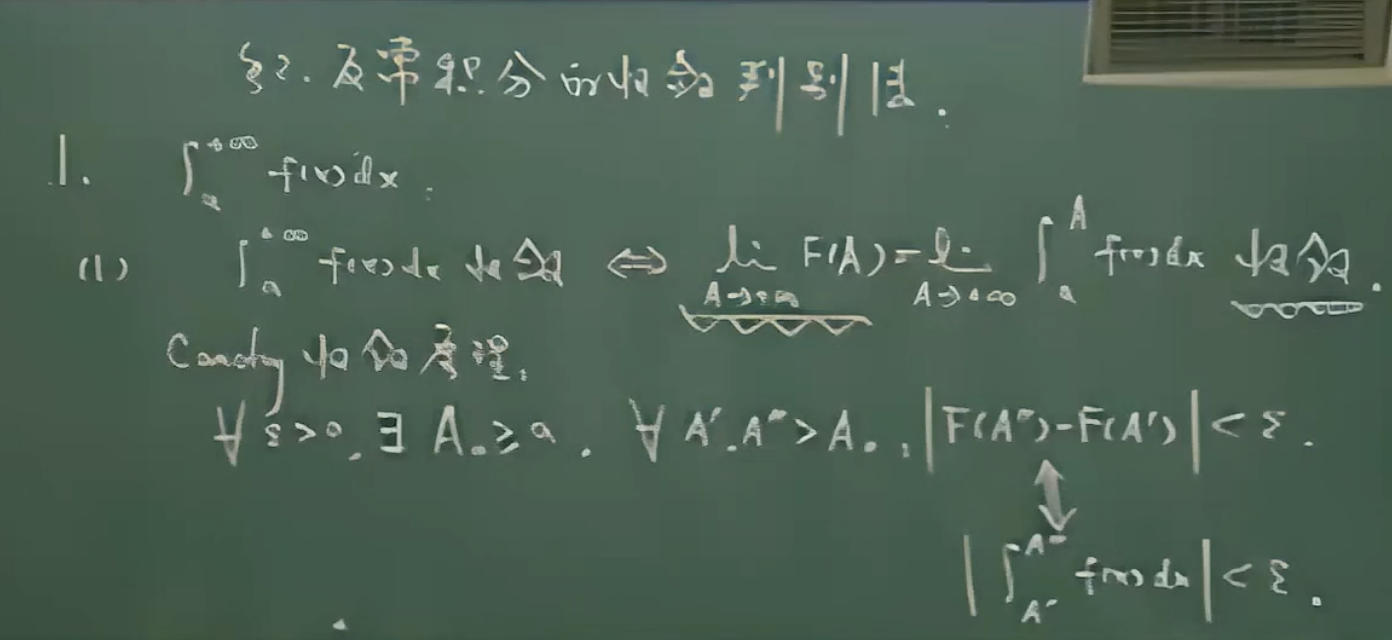 §2. 反常积分的收敛判别法.
1. ∫_a^{+∞} f(x)dx.
(1) ∫_a^{+∞} f(x)dx 收敛 ⇔ lim_{A→+∞} F(A) = lim_{A→+∞} ∫_a^A f(x)dx 收敛.
Cauchy 收敛原理.
∀ε>0, ∃A₀≥a, ∀A′,A″>A₀, |F(A″)-F(A′)|<ε.
↕
|∫_{A′}^{A″} f(x)dx|<ε.